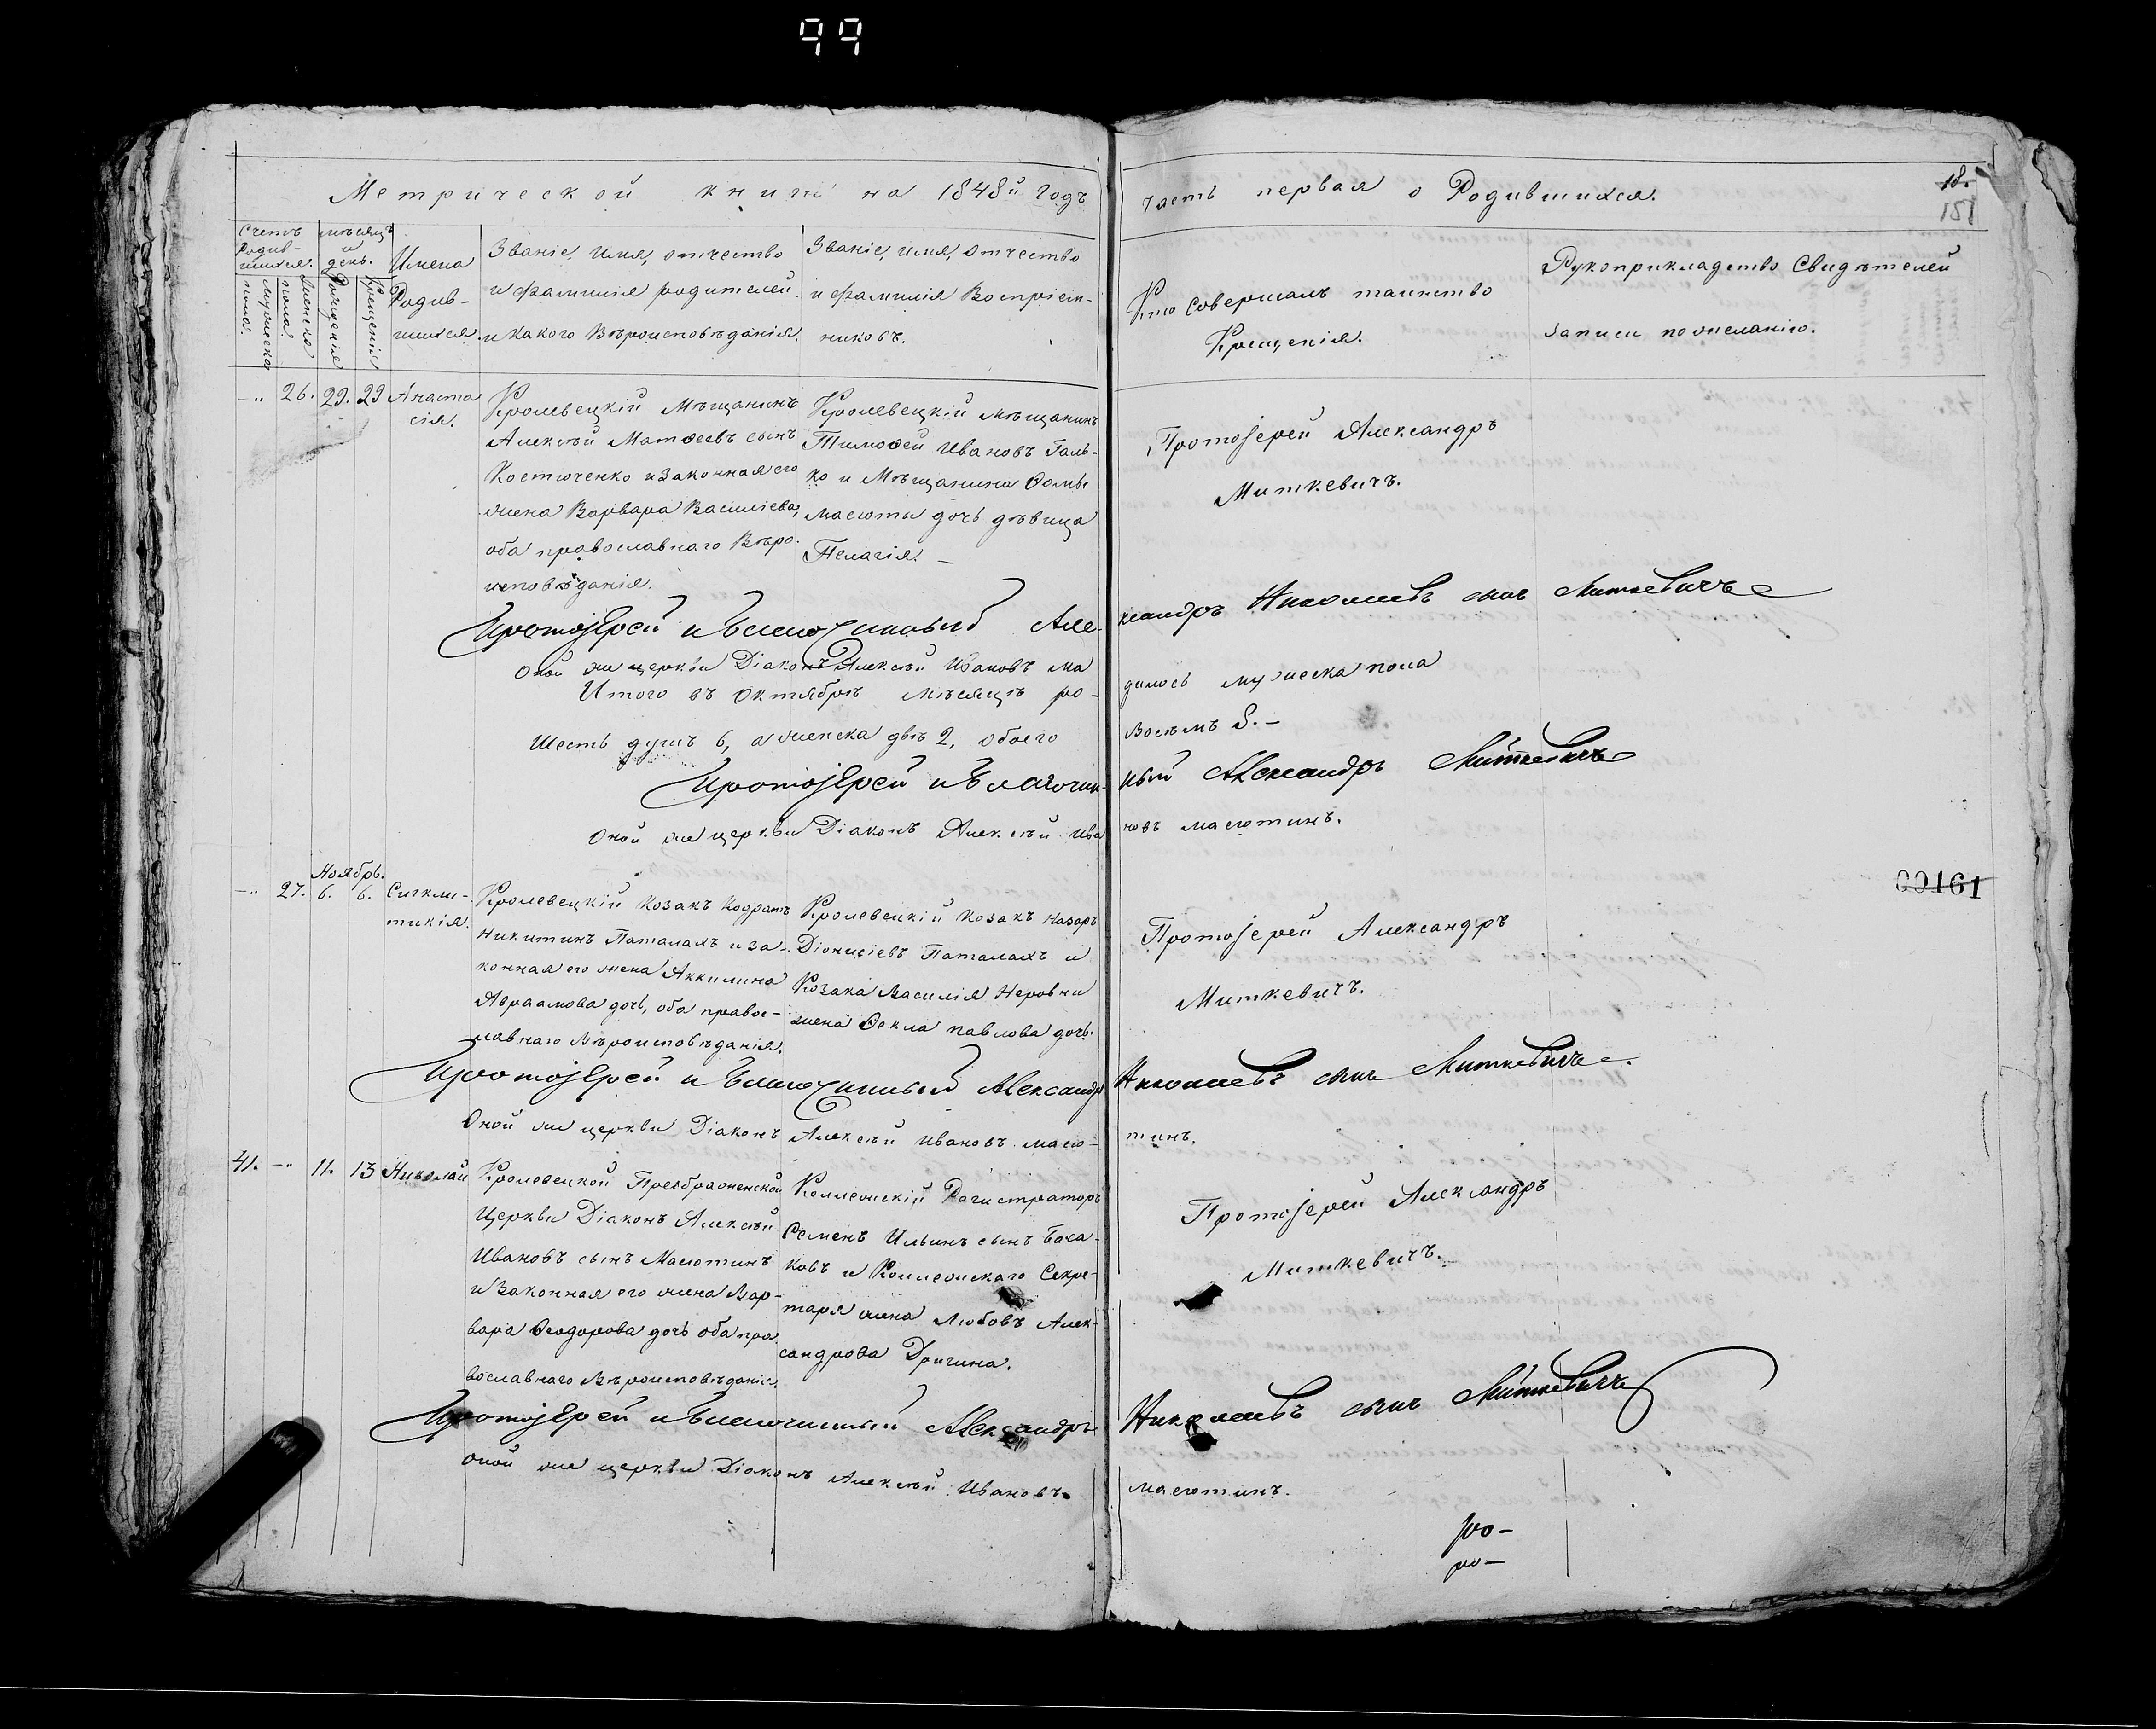 99
Метрической книги на 1848й годъ
часть первая о Родившихся.
18.
151
Счетъ Родив-шихся.
мѣсяцъ и день.
мужеска пола.
женска пола.
Рожденія
Крещенія
Имена Родив-шихся.
Званіе, имя, отчество
и фамилія родителей
и какого Вѣроисповѣданія.
Званіе, имя, отчество
и фамилія Воспріем-
никовъ.
Кто совершалъ таинство
Крещенія.
Рукоприкладство Свидѣтелей
записи по желанію.
26. 29. 29 Анаста
сія.
Кролевецкій Мѣщанинъ
Алексѣй Матѳеевъ сынъ
Костюченко и законная его
жена Варвара Василіева,
оба православнаго Вѣро-
исповѣданія.
Кролевецкій мѣщанинъ
Тимоѳей Ивановъ Галь-
ко и Мѣщанина Ѳомы
Масюты дочь дѣвица
Пелагія. —
Протоіерей Александръ
Миткевичъ.
Протоіерей и Благочинный Але-
ксандръ Николаевъ сынъ Миткевичъ
Оной же церкви Діаконъ Алексѣй Ивановъ Ма
Итого въ Октябрѣ мѣсяцѣ ро-
дилось мужеска пола
Шесть душъ 6, а женска двѣ 2, обоего
Восѣмь 8. —
Протоіерей и Благочин-
ный Александръ Миткевичъ
Оной же церкви Діаконъ Алексѣй Ива
новъ Масютинъ.
Ноябрь.
27. 6. 6. Сигкли-
тикія.
Кролевецкій козакъ Кодратъ
Никитинъ Паталахъ и за-
конная его жена Аккилина
Авраамова дочь, оба правос-
лавнаго Вѣроисповѣданія.
Кролевецкій козакъ Назаръ
Діонисіевъ Паталахъ и
Козака Василія Неровни
жена Ѳекла Павлова дочь.
Протоіерей Александръ
Миткевичъ.
00161
Протоіерей и Благочинный Александръ
Николаевъ сынъ Миткевичъ.
Оной же церкви Діаконъ Алексѣй Ивановъ Масю-
тинъ.
41. 11. 13 Николай
Кролевецкой Преображенской
Церкви Діаконъ Алексѣй
Ивановъ сынъ Масютинъ
и Законная его жена Вар-
вара Ѳеодорова дочь оба пра
вославнаго Вѣроисповѣданія.
Коллежскій Регистраторъ
Семенъ Ильинъ сынъ Бача-
ковъ и Коллежскаго Секре-
таря жена Любовь Алек-
сандрова Дригина.
Протоіерей Александръ
Миткевичъ.
Протоіерей и Благочинный Александръ
Николаевъ сынъ Миткевичъ
Оной же церкви Діаконъ Алексѣй Ивановъ
Масютинъ.
ро-
ро-